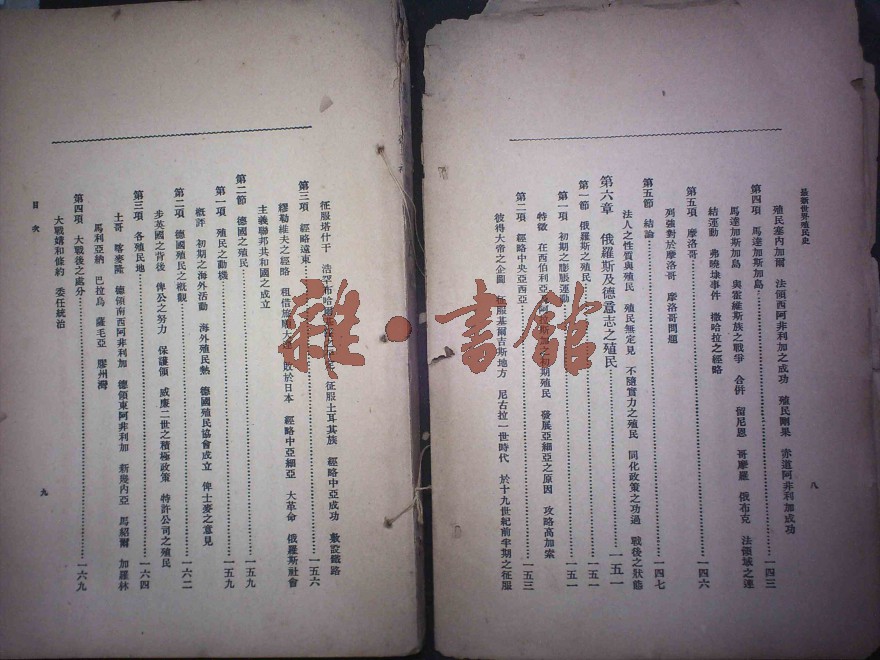 最新世界殖民史
殖民塞內加爾 法領西阿非利加之成功 殖民剛果 赤道阿非利加成功
第四項 馬達加斯加島……一四三
馬達加斯加島 與霍維斯族之戰爭 合併 留尼恩 哥摩羅 俄布克 法領域之連
結運動 弗曉埭事件 撒哈拉之經略
第五項 摩洛哥……一四六
列強對於摩洛哥 摩洛哥問題
第五節 結論……一四七
法人之性質與殖民 殖民無定見 不隨實力之殖民 同化政策之功過 戰後之狀態
第六章 俄羅斯及德意志之殖民……一五一
第一節 俄羅斯之殖民……一五一
第一項 初期之膨脹運動……一五一
特徵 在西伯利亞 期殖民 發展亞細亞之原因 攻略高加索
第二項 經略中央亞西亞……一五三
彼得大帝之企圖 征服基爾吉斯地方 尼古拉一世時代 於十九世紀前半期之征服
八
征服塔什干 浩罕布哈爾 征服土耳其族 經略中亞成功 敷設鐵路
第三項 經略遠東……一五六
繆勒維夫之經略 租借旅順大 敗於日本 經略中亞細亞 大革命 俄羅斯社會
主義聯邦共和國之成立
第二節 德國之殖民……一五九
第一項 殖民之動機……一五九
概評 初期之海外活動 海外殖民熱 德國殖民協會成立 俾士麥之意見
第二項 德國殖民之概觀……一六二
步英國之背後 俾公之努力 保護領 威廉二世之積極政策 特許公司之殖民
第三項 各殖民地……一六四
土哥 喀麥隆 德領南西阿非利加 德領東阿非利加 新幾內亞 馬紹爾 加羅林
馬利亞納 巴拉烏 薩毛亞 膠州灣
第四項 大戰後之處分……一六九
大戰媾和條約 委任統治
目次
九
雜·書館